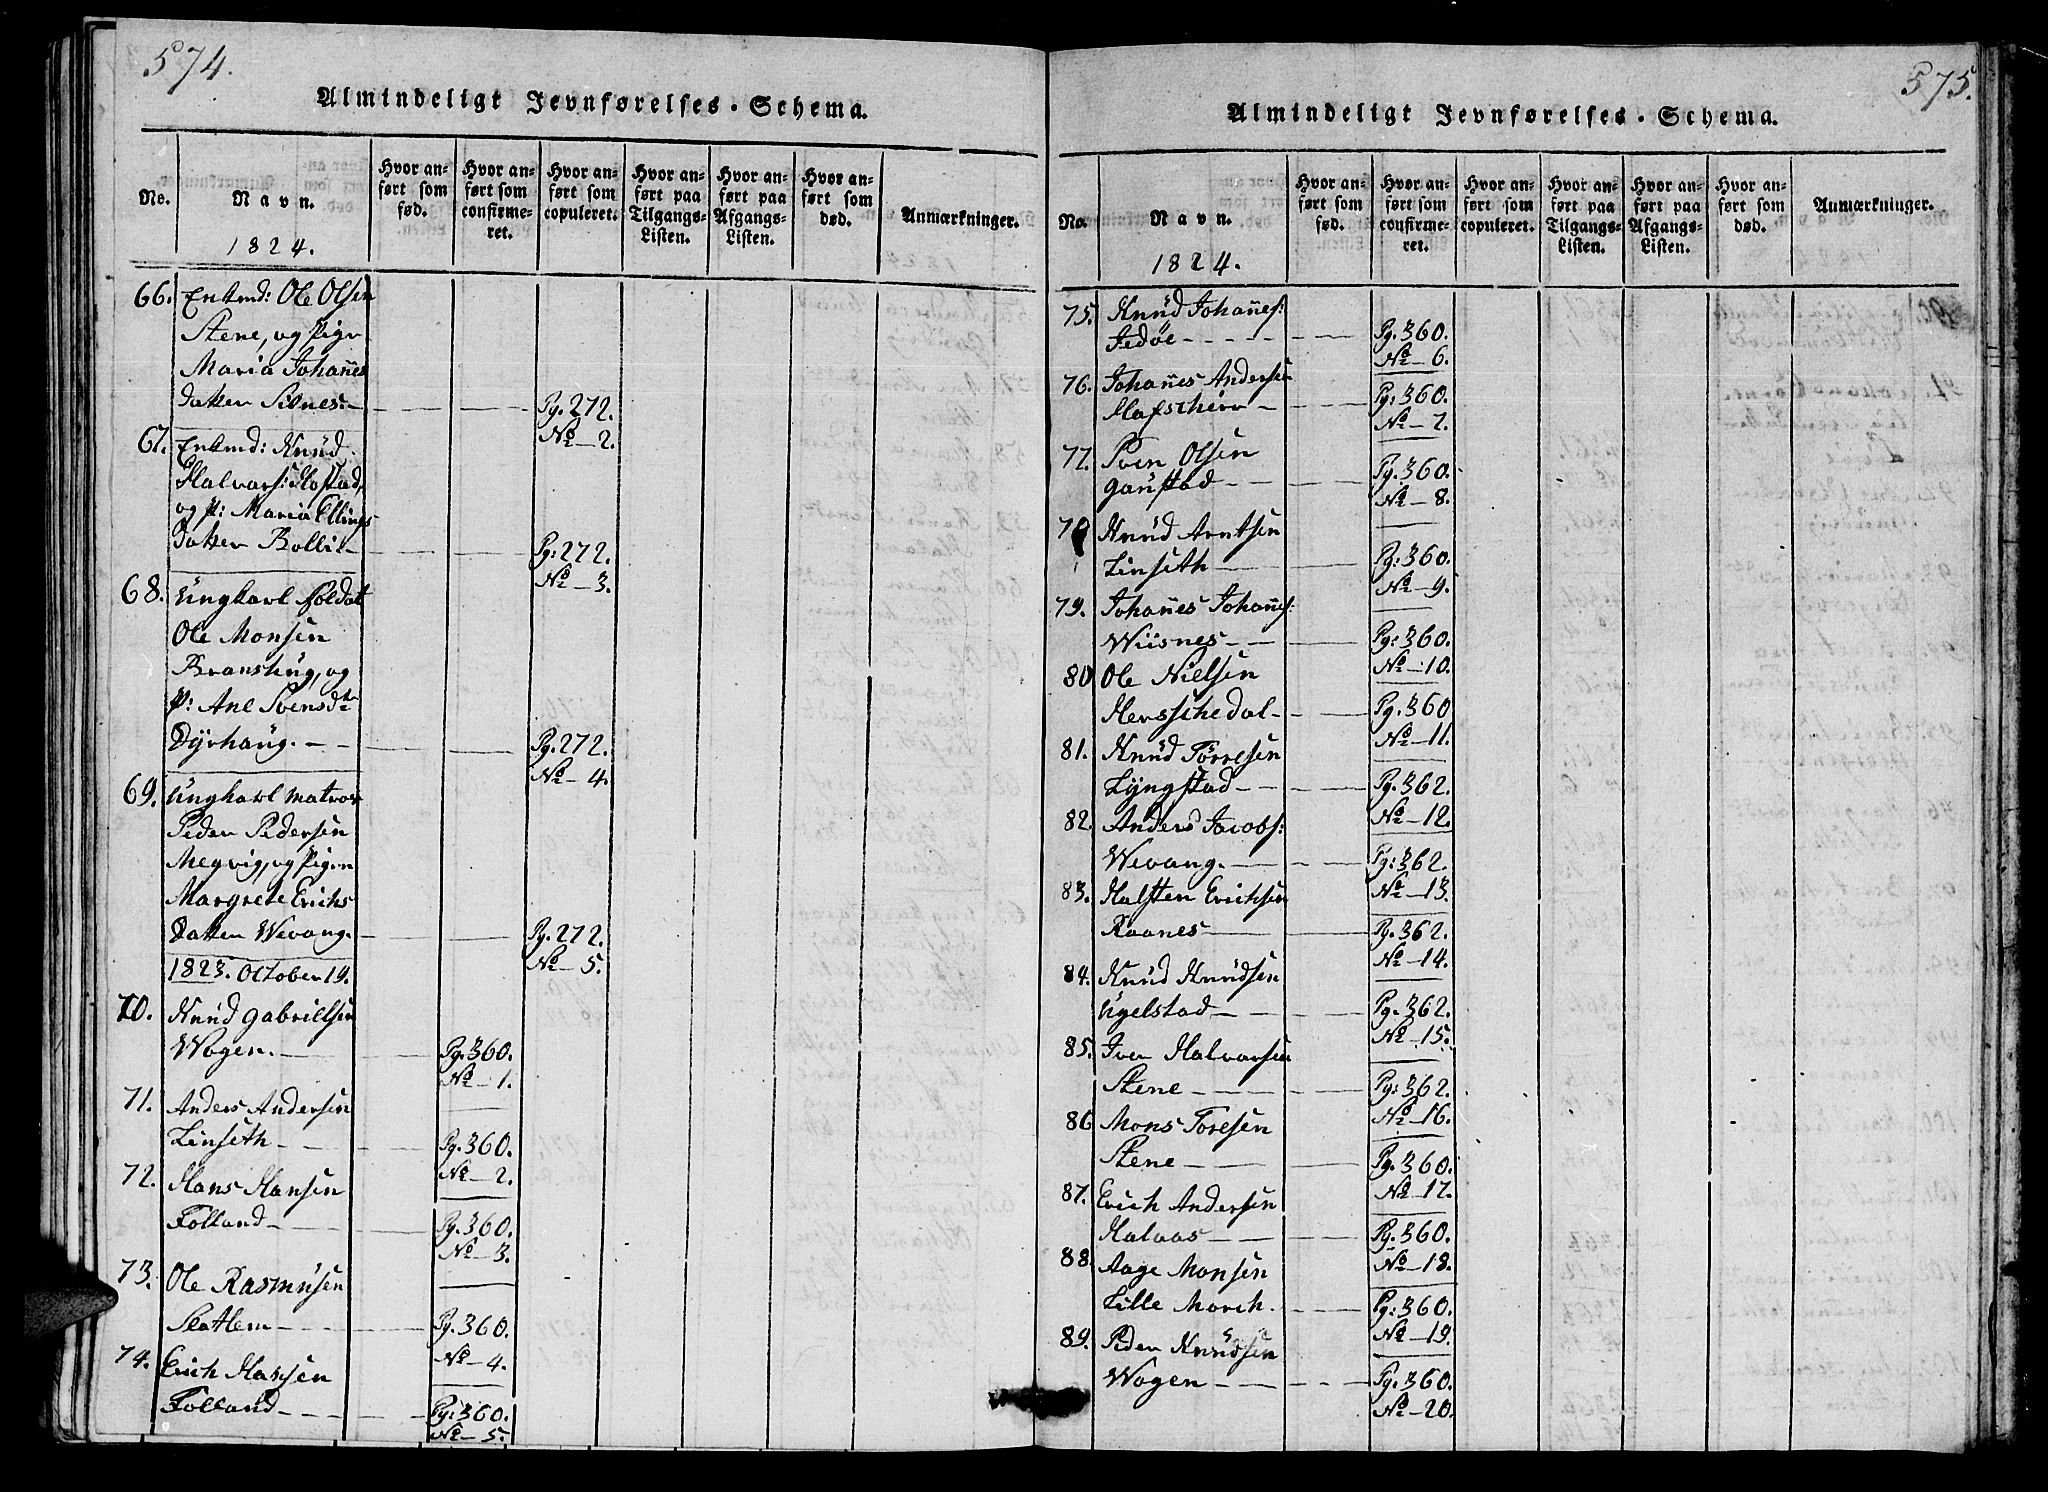 574.
Almindeligt Jevnførelses-Schema.
No.
Navn.
Hvor anført som fød.
Hvor anført som confirmeret.
Hvor anført som copuleret.
Hvor anført paa Tilgangs-Listen.
Hvor anført paa Afgangs-Listen.
Hvor anført som død.
Anmærkninger.
1824.
66. Enkmd: Ole Olsen
Stene, og Pige
Maria Johan̄es
datter Silnes. Pg. 272.
No 2.
67. Enkmd: Knud
Halvors: Hostad,
og P: Maria Ellings
datter Bollie Pg: 272.
No 3.
68. Ungkarl Soldat
Ole Monsen
Branshug, og
P: Ane Svensdtr
Dyrhaug. Pg. 272.
No 4.
69. Ungkarl Matros
Peder Pedersen
Megvig, og Pigen
Margrete Erichs
Datter Wevang. Pg. 272.
No 5.
1823. October 19.
70. Knud Gabrielsen
Wogen. Pg. 360.
No 1.
71. Anders Andersen
Linseth Pg. 360.
No 2.
72. Hans Hansen
Folland Pg. 360.
No 3.
73. Ole Rasmusen
Slatlem Pg. 360.
No 4.
74. Erich Hansen
Folland Pg: 360.
No 5.
575.
Almindeligt Jevnførelses-Schema.
No.
Navn.
Hvor anført som fød.
Hvor anført som confirmeret.
Hvor anført som copuleret.
Hvor anført paa Tilgangs-Listen.
Hvor anført paa Afgangs-Listen.
Hvor anført som død.
Anmærkninger.
1824.
75. Knud Johan̄es:
Jedøe Pg. 360.
No 6.
76. Johan̄es Andersen
Pg: 360.
No 7.
77. Sven Olsen
Gaustad Pg. 360.
No 8.
78 Knud Arntsen
Linseth Pg: 360.
No 9.
79. Johan̄es Johan̄es:
Wiisnes Pg: 360.
No 10.
80 Ole Nielsen
Herschedal Pg. 360
No 11.
81. Knud Torresen
Lyngstad Pg. 362.
No 12.
82. Anders Jacobs:
Wevang. Pg: 362.
No 13.
83. Halsten Erichsen
Raanes Pg. 362.
No 14.
84. Knud Knudsen
Ugelstad Pg. 362.
No 15.
85. Iver Halvorsen
Stene Pg: 362.
No 16.
86 Mons Toresen
Stene Pg. 360.
No 17.
87. Erich Andersen
Halaas Pg. 360.
No 18.
88. Aage Monsen
Lille Morch. Pg: 360.
No 19.
89. Peder Knudsen
Wogen Pg. 360.
No 20.